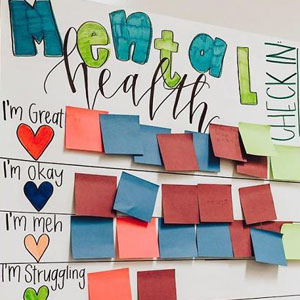 Mental
health
CHECK IN:
I'm Great
I'm Okay
I'm meh
I'm Struggling